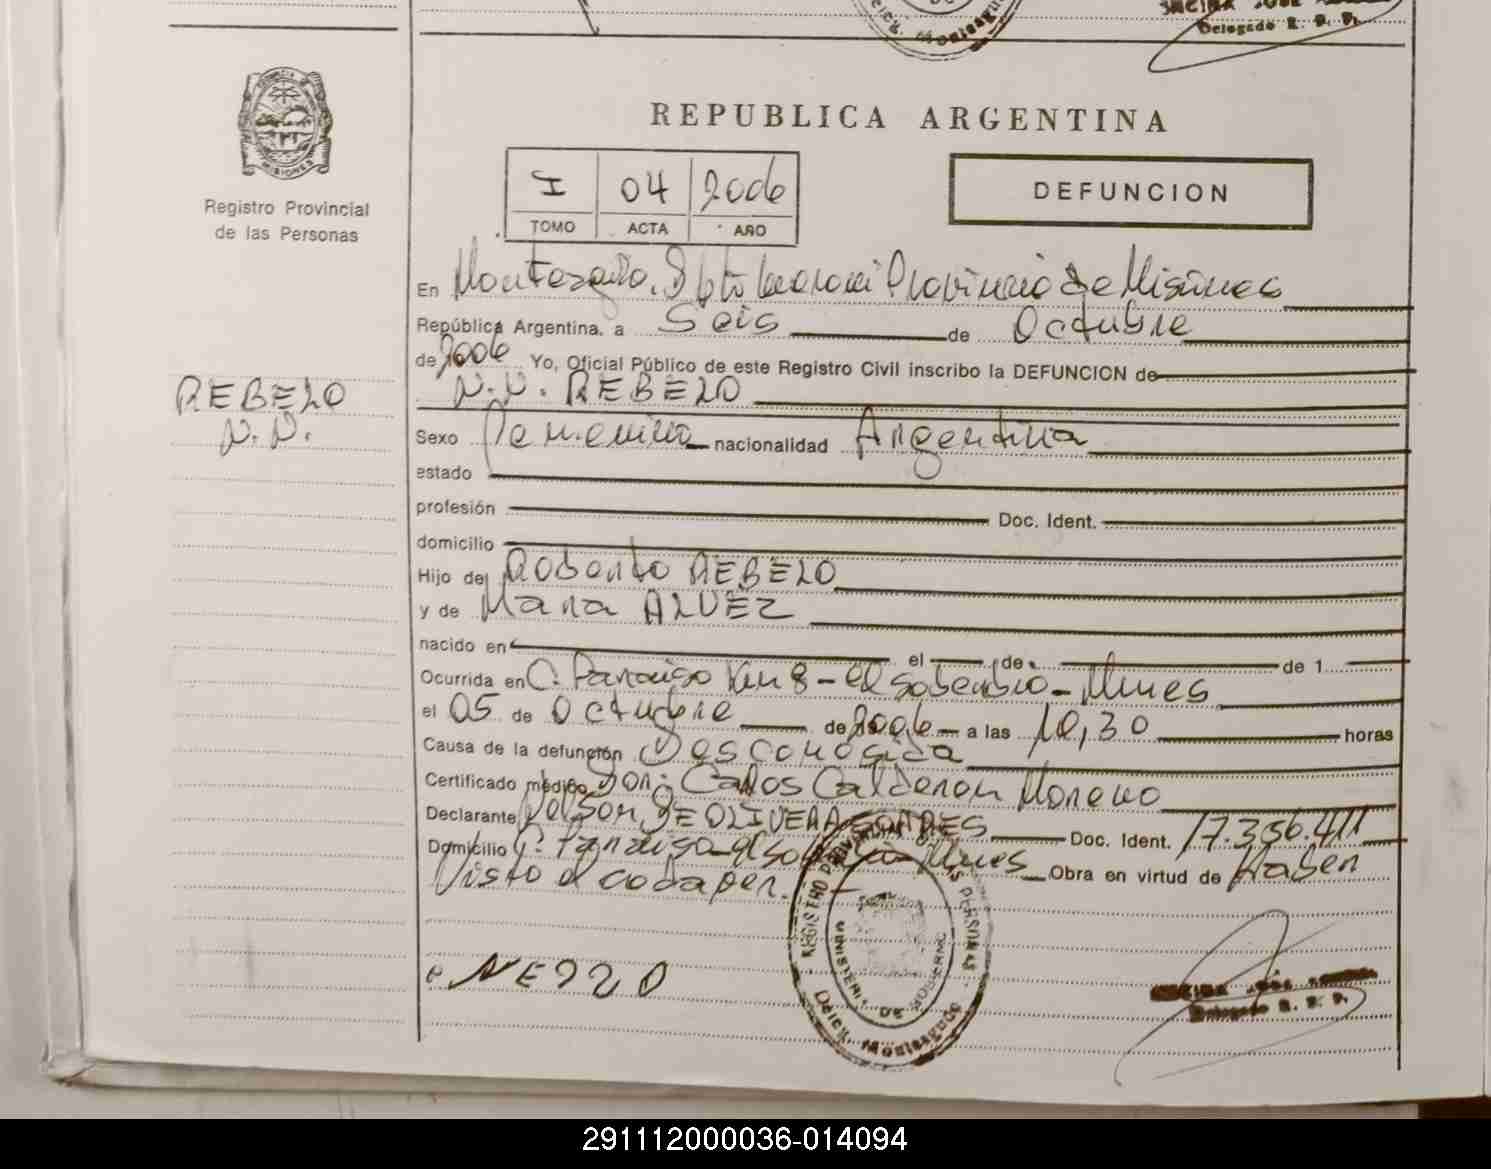 Delegado R. P. P.
REPUBLICA ARGENTINA
I 04 2006
TOMO ACTA AÑO
DEFUNCION
MISIONES
Registro Provincial
de las Personas
En Monteagudo. Dpto Guarani Provincia de Misiones
República Argentina. a Seis de Octubre
de 2006 Yo, Oficial Público de este Registro Civil inscribo la DEFUNCION de
N.N. REBELO
REBELO
N.N.
Sexo Femenino nacionalidad Argentina
estado
profesión Doc. Ident.
domicilio
Hijo de Roberto REBELO
y de Maria ALVEZ
nacido en el de de 1
Ocurrida en C. Paraiso Km 8 - el soberbio - Mnes
el 05 de Octubre de 2006 a las 10,30 horas
Causa de la defunción Desconosida
Certificado médico Dor. Carlos Calderon Moreno
Declarante Nelson DE OLIVERA SOARES Doc. Ident. 17.356.411
Domicilio C. Paraiso - el soberbio - Mnes Obra en virtud de Haber
Visto el cadaver.
REGISTRO PROVINCIAL DE LAS PERSONAS
MINISTERIO DE GOBIERNO
Deleg. Monteagudo
Delegado R. P. P.
291112000036-014094